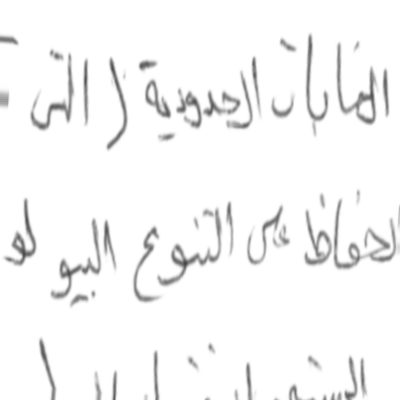 الغابات الحدودية ( التي
الحفاظ على التنوع البيو لو